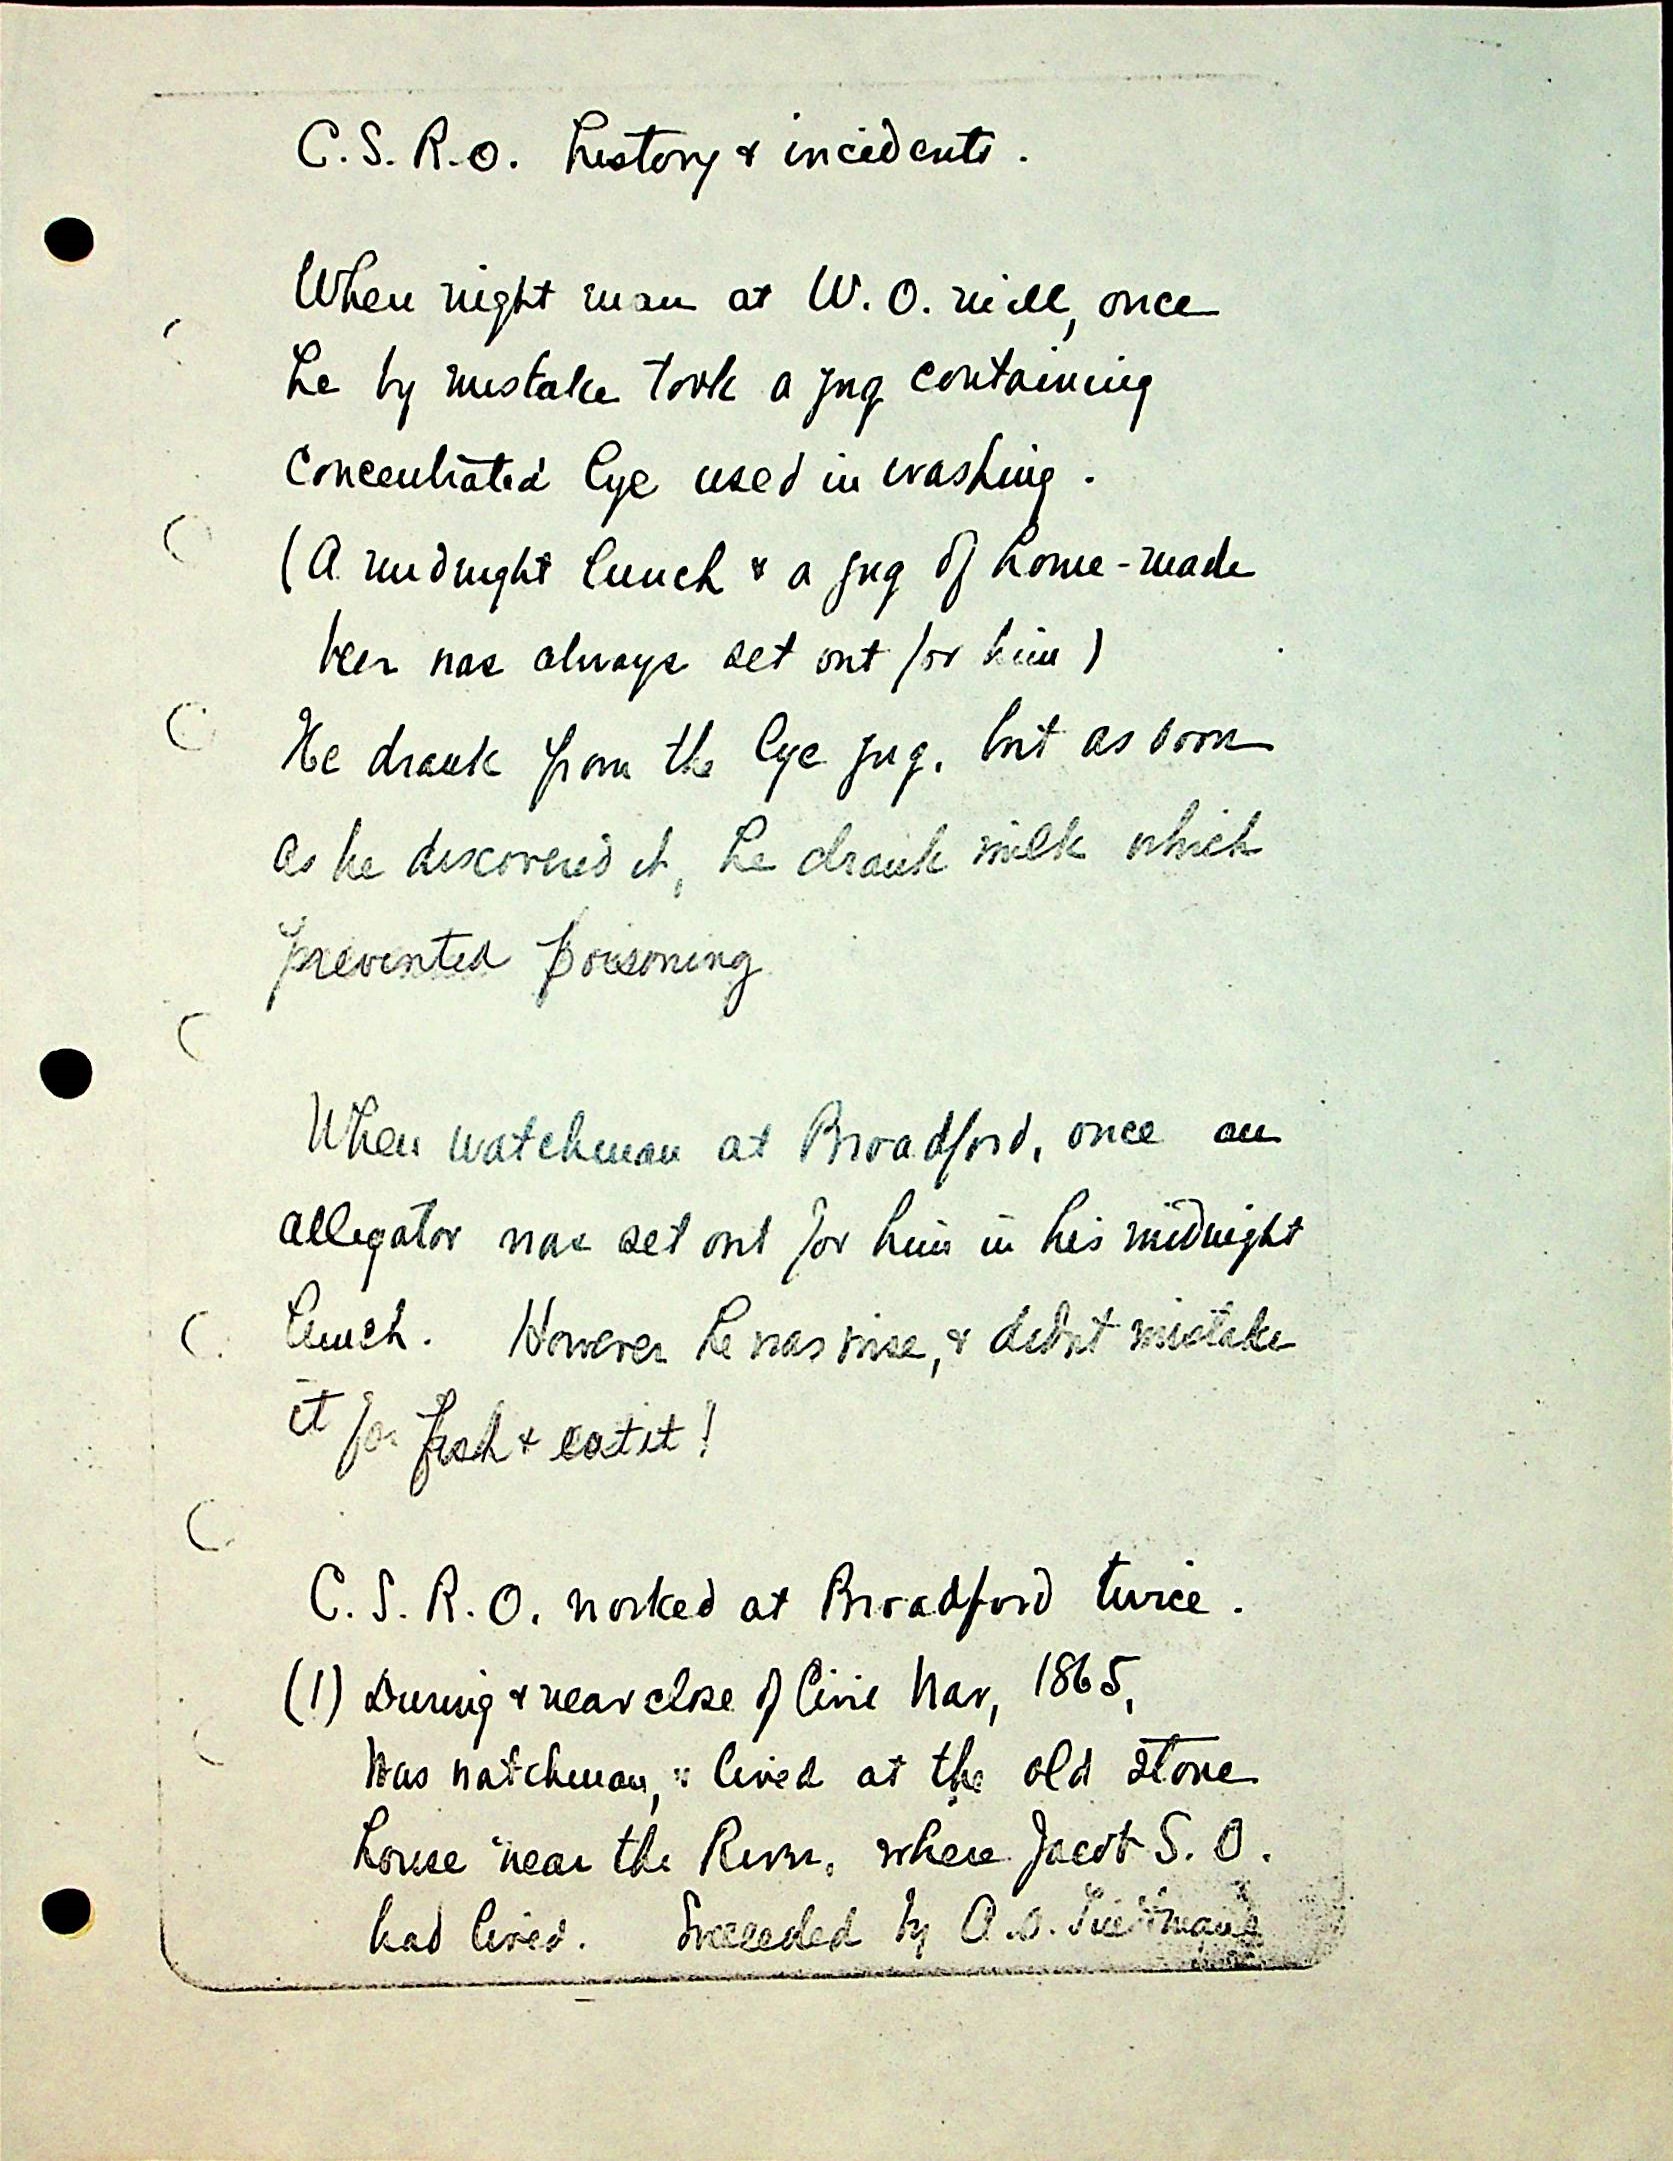 C. S. R. O. history & incidents.
When night man at W. O. mill, once
he by mistake took a jug containing
concentrated lye used in washing.
(A midnight lunch & a jug of home-made
beer was always set out for him)
He drank from the lye jug, but as soon
as he discovered it, he drank milk which
prevented poisoning
When watchman at Bradford, once an
alligator was set out for him in his midnight
lunch. However he was wise, & didn't mistake
it for fish & eat it!
C. S. R. O. worked at Bradford twice.
(1) During & near close of Civil War, 1865,
Was watchman, & lived at the old stone
house near the River, where Jacob S. O.
had lived. Succeeded by A. O.